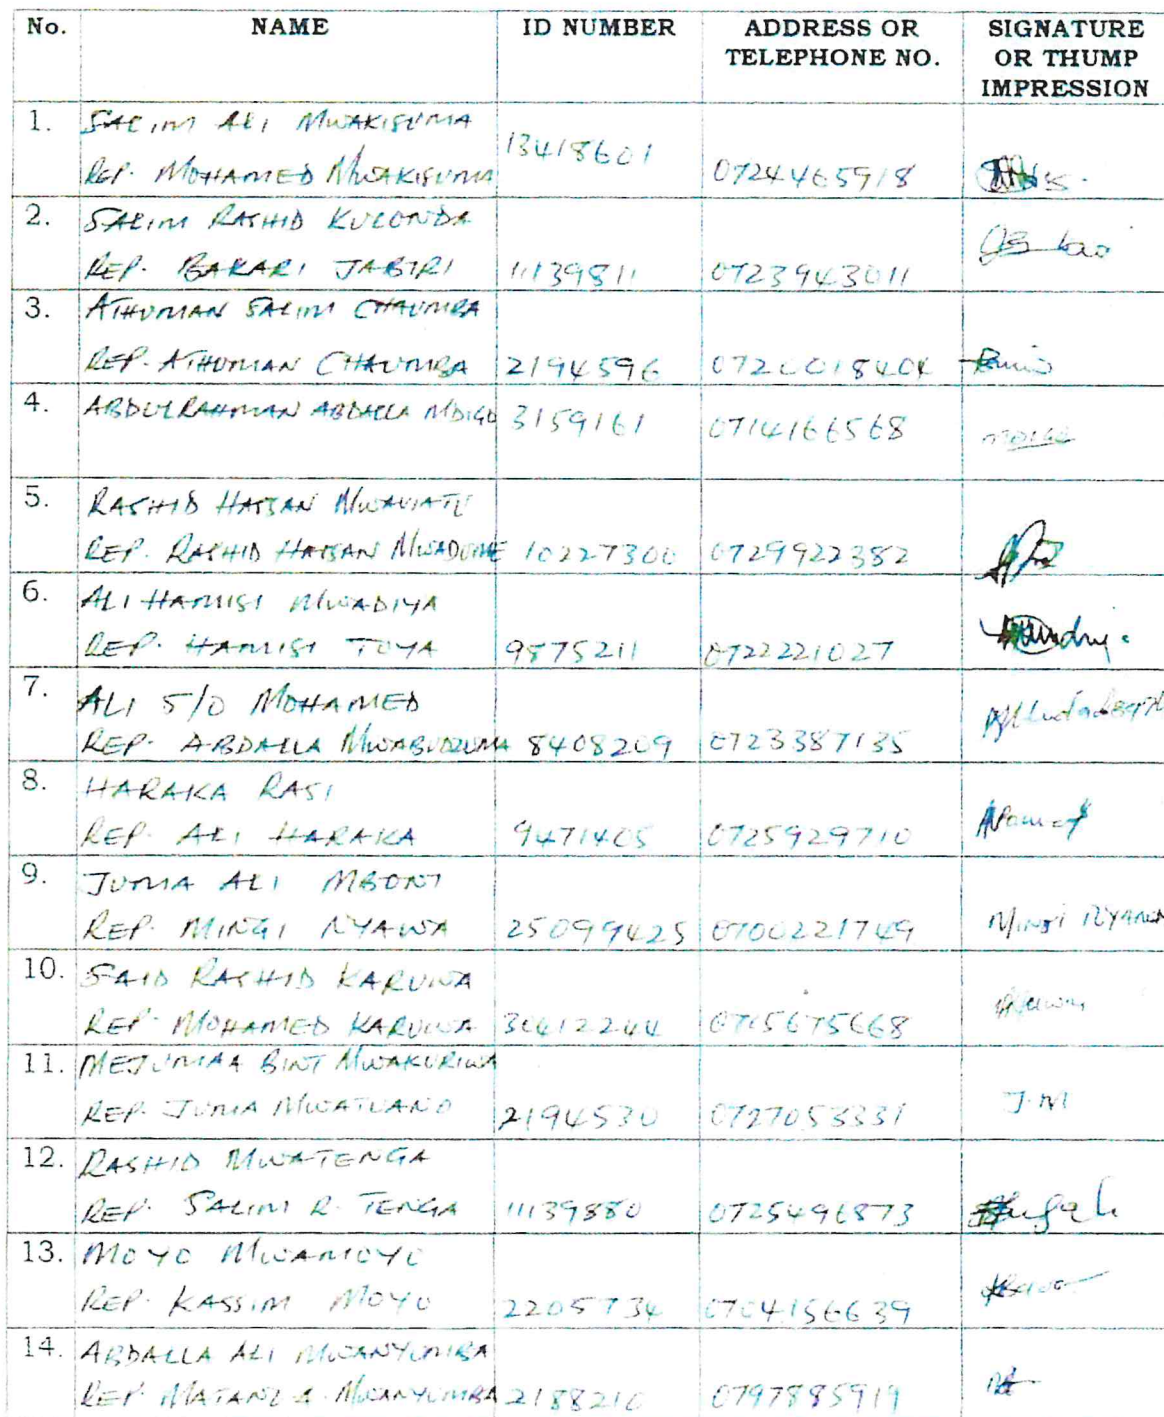 No. NAME ID NUMBER ADDRESS OR TELEPHONE NO. SIGNATURE OR THUMP IMPRESSION
1. SALIM ALI MWAKISUMA
REP. MOHAMED MWAKISUMA 13418601 0724465918
2. SALIM RASHID KULONDA
REP. BAKARI JABIRI 11139811 0723943011
3. ATHUMAN SALIM CHAUMBA
REP. ATHUMAN CHAUMBA 2194596
4. ABDULRAHMAN ABDALLA MDIGO 3159161 0714166568
5. RASHID HASSAN MWAVIATU
REP. RASHID HASSAN 10227300 0729922382
6. ALI HAMISI MWADIYA
REP. HAMISI TOYA 9875211 0722221027
7. ALI S/O MOHAMED
REP. ABDALLA MWABUDZUMA 8408209 0723387135
8. HARAKA RASI
REP. ALI HARAKA 9471405 0725929710
9. JUMA ALI MBONI
REP. MINGI NYAWA 25099425 0700221749
10. SAID RASHID KARUWA
REP. MOHAMED KARUWA 30412244 0715675668
11. MEJUMAA BINT MWAKURIWA
REP. JUMA 2194530 0727053331 J.M
12. RASHID MWATENGA
REP. SALIM R. TENGA 11139880 0725496873
13. MOYO MWAMOYO
REP. KASSIM MOYO 2205734 0704156639
14. ABDALLA ALI MWANYUMBA
REP. A. MWANYUMBA 2188210 0797885919